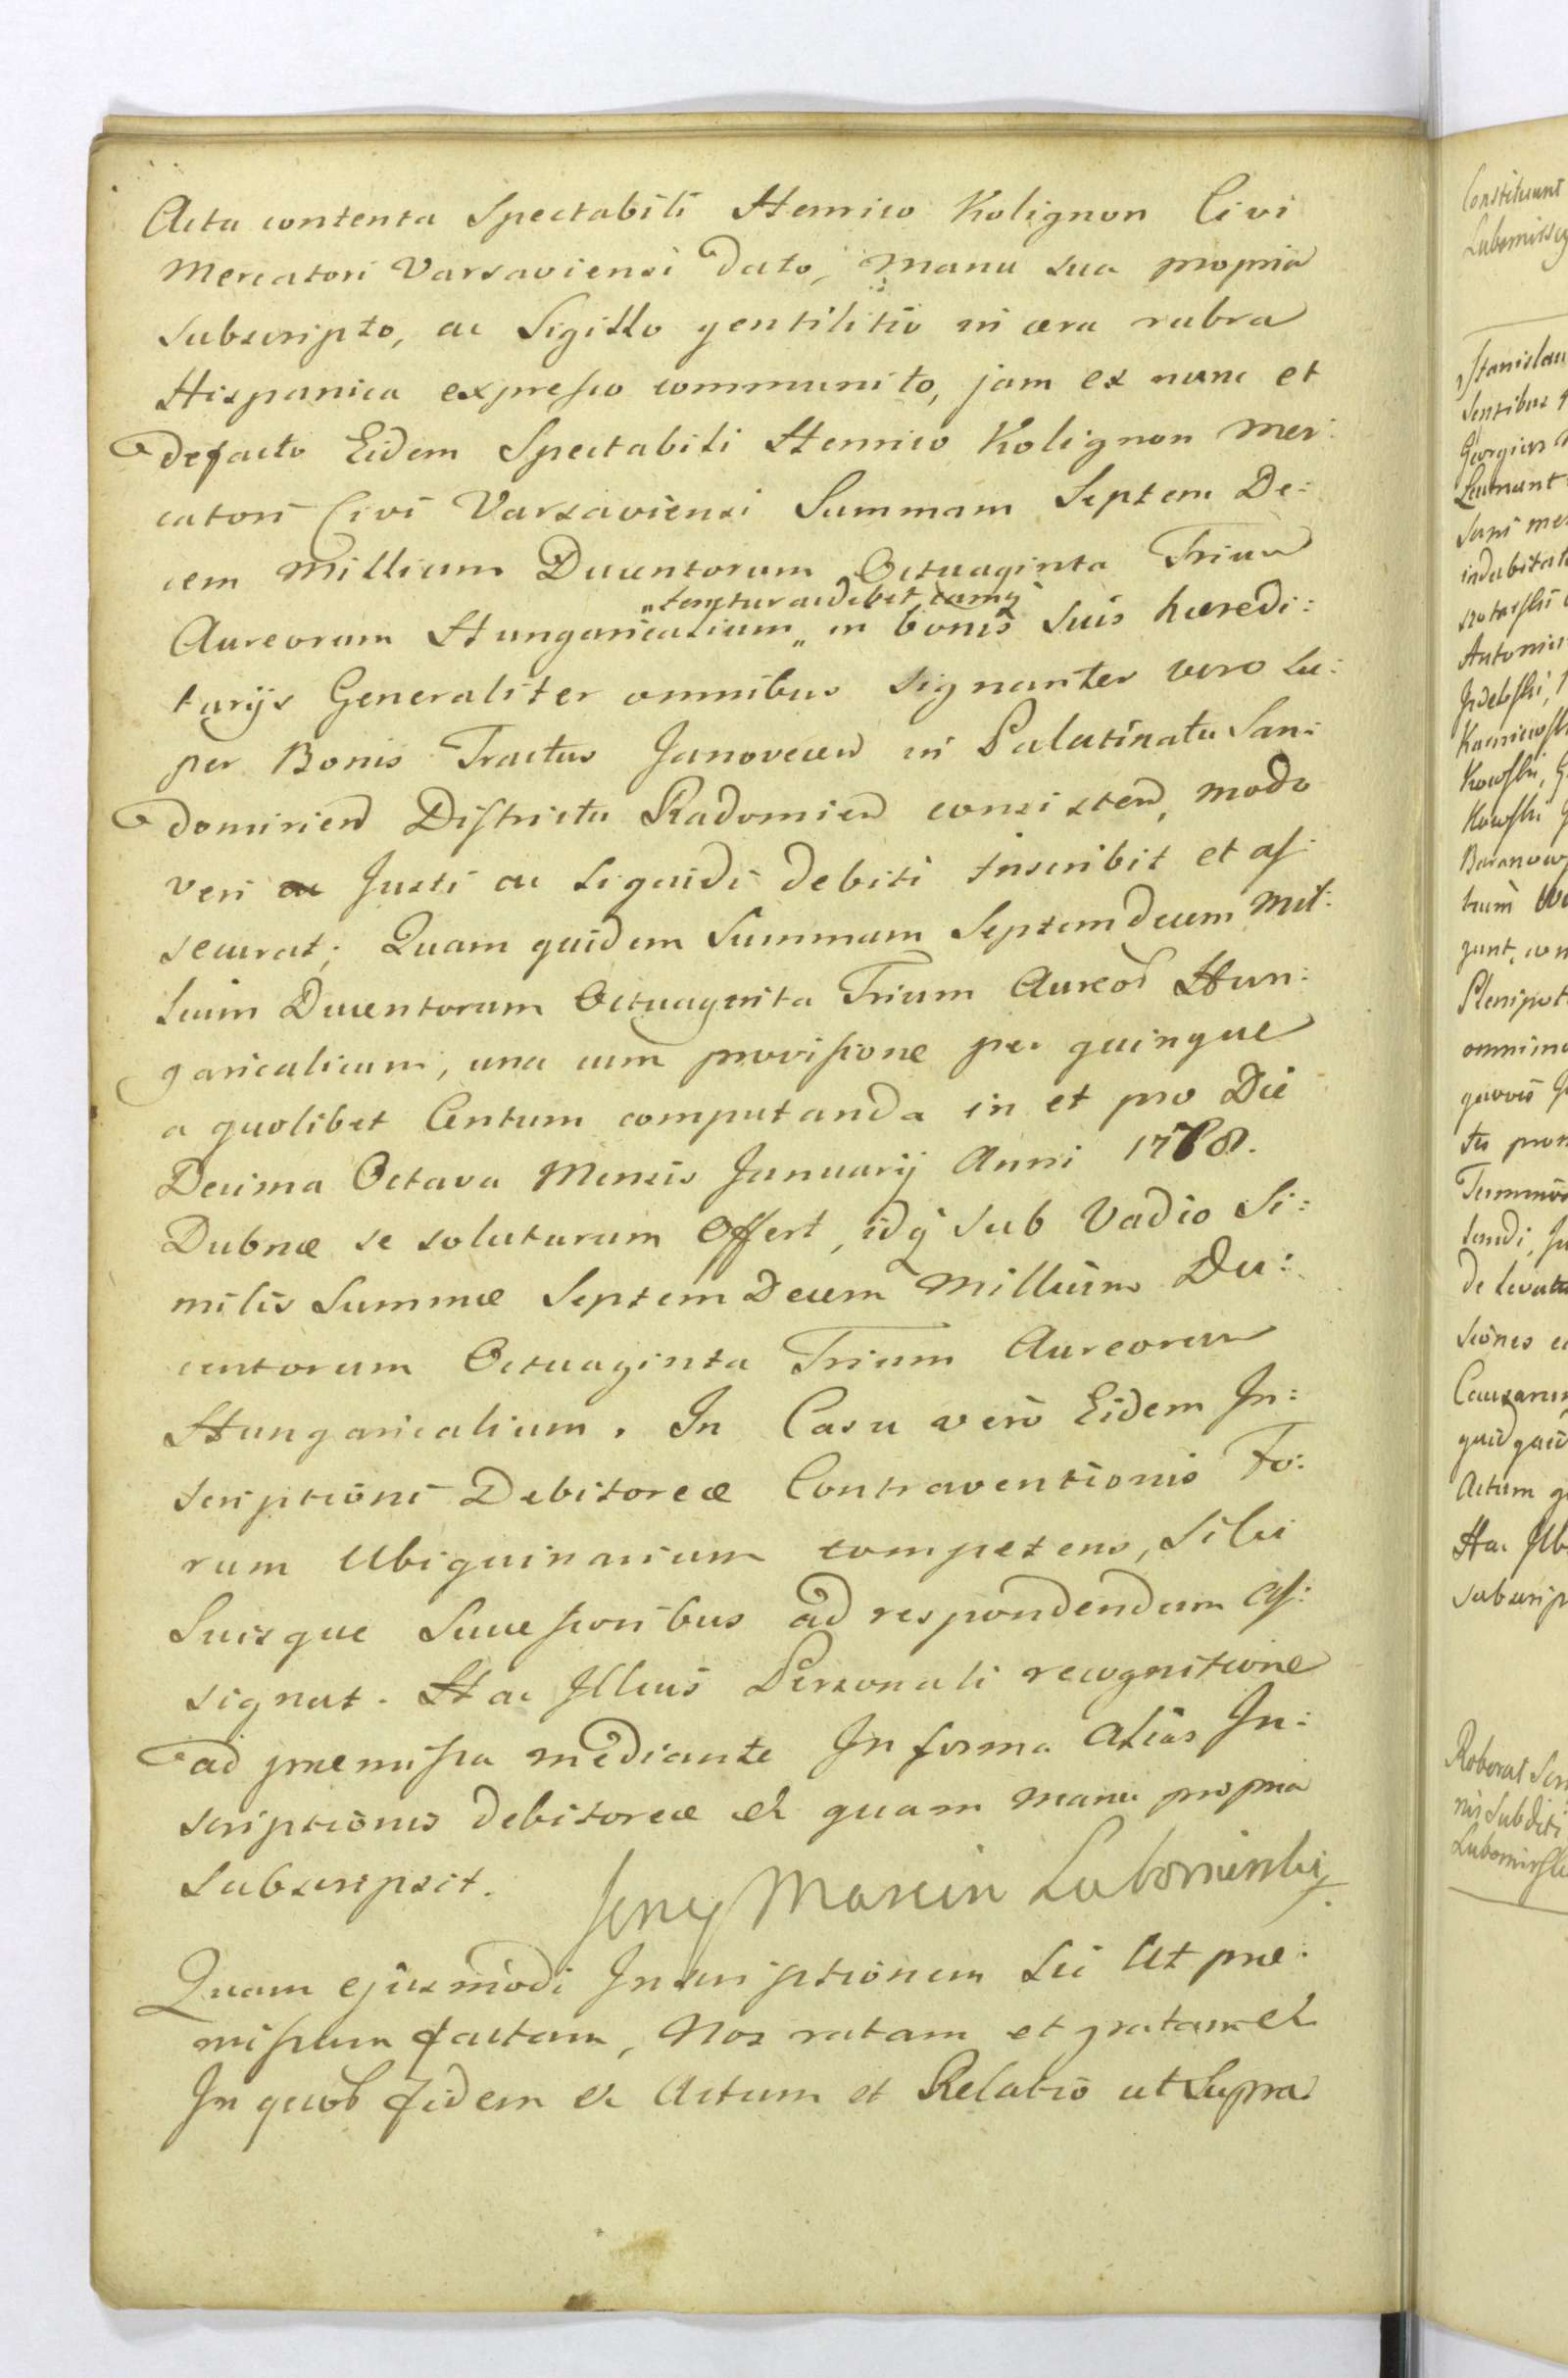 Acta contenta Spectabili Henrico Kolignon Civi
Mercatori Varsaviensi dato, manu sua propria
subscripto, ac Sigillo gentilitio in cera rubra
Hispanica expresso communito, jam ex nunc et
defacto Eidem Spectabili Henrico Kolignon Mer:
catori Civi Varsaviensi Summam Septem De:
cem Millium Ducentorum Octuaginta Trium
„tenetur ac debet, eamq̃
Aureorum Hungaricalium „ in bonis suis hæredi:
tarijs Generaliter omnibus signanter vero Su:
per Bonis Tractus Janovecen in Palatinatu San:
domirien Districtu Radomien consisten, modo
veri Justi ac Liquidi debiti inscribit et as:
securat; Quam quidem Summam Septemdecem Mil:
lium Ducentorum Octuaginta Trium Aureor Hun:
garicalium, una cum provisione per quinque
a quolibet Centum computanda in et pro Die
Decima Octava Mensis Januarij Anni 1768.
Dubnæ se soluturum Offert, idq̃ sub Vadio Si:
milis Summæ Septem Decem Millium Du:
centorum Octuaginta Trium Aureorum
Hungaricalium. In Casu vero Eidem In:
scriptioni Debitoreæ Contraventionis Fo:
rum Ubiquinarium competens, Sibi
Suisque Successoribus ad respondendum as:
signat. Hac Illius Personali recognitione
ad præmissa mediante In forma alias In:
scriptionis debitoreæ et quam manu propria
Subscripsit.
Jerzy Marcin Lubomirski
Quam ejusmodi Inscriptionem Sic Ut præ:
missum factam, Nos ratam et gratam et
In quor fidem et Actum et Relatio ut Supra
Constituunt
Stanislau
Sensibus
indubitat
Antonius
omnimo
Actum
Roborat